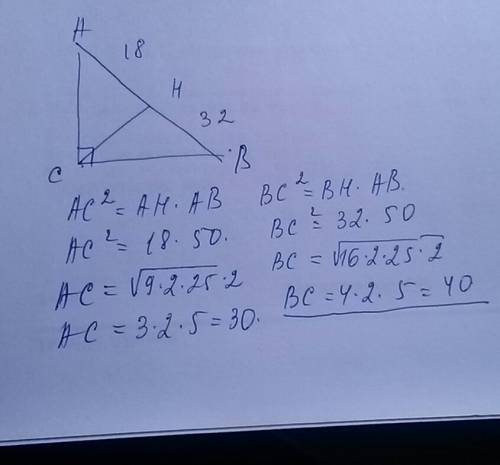 A
18
H
32
C
B
AC² = AH · AB
AC² = 18 · 50.
AC = √9·2·25·2
AC = 3·2·5 = 30.
BC² = BH · AB.
BC² = 32 · 50
BC = √16·2·25·2
BC = 4·2·5 = 40